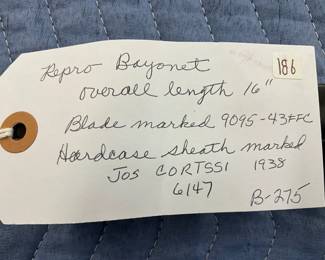 186
Repro Bayonet
overall length 16"
Blade marked 9095-43FFC
Hardcase sheath marked
JOS CORTSSI 1938
6147
B-275